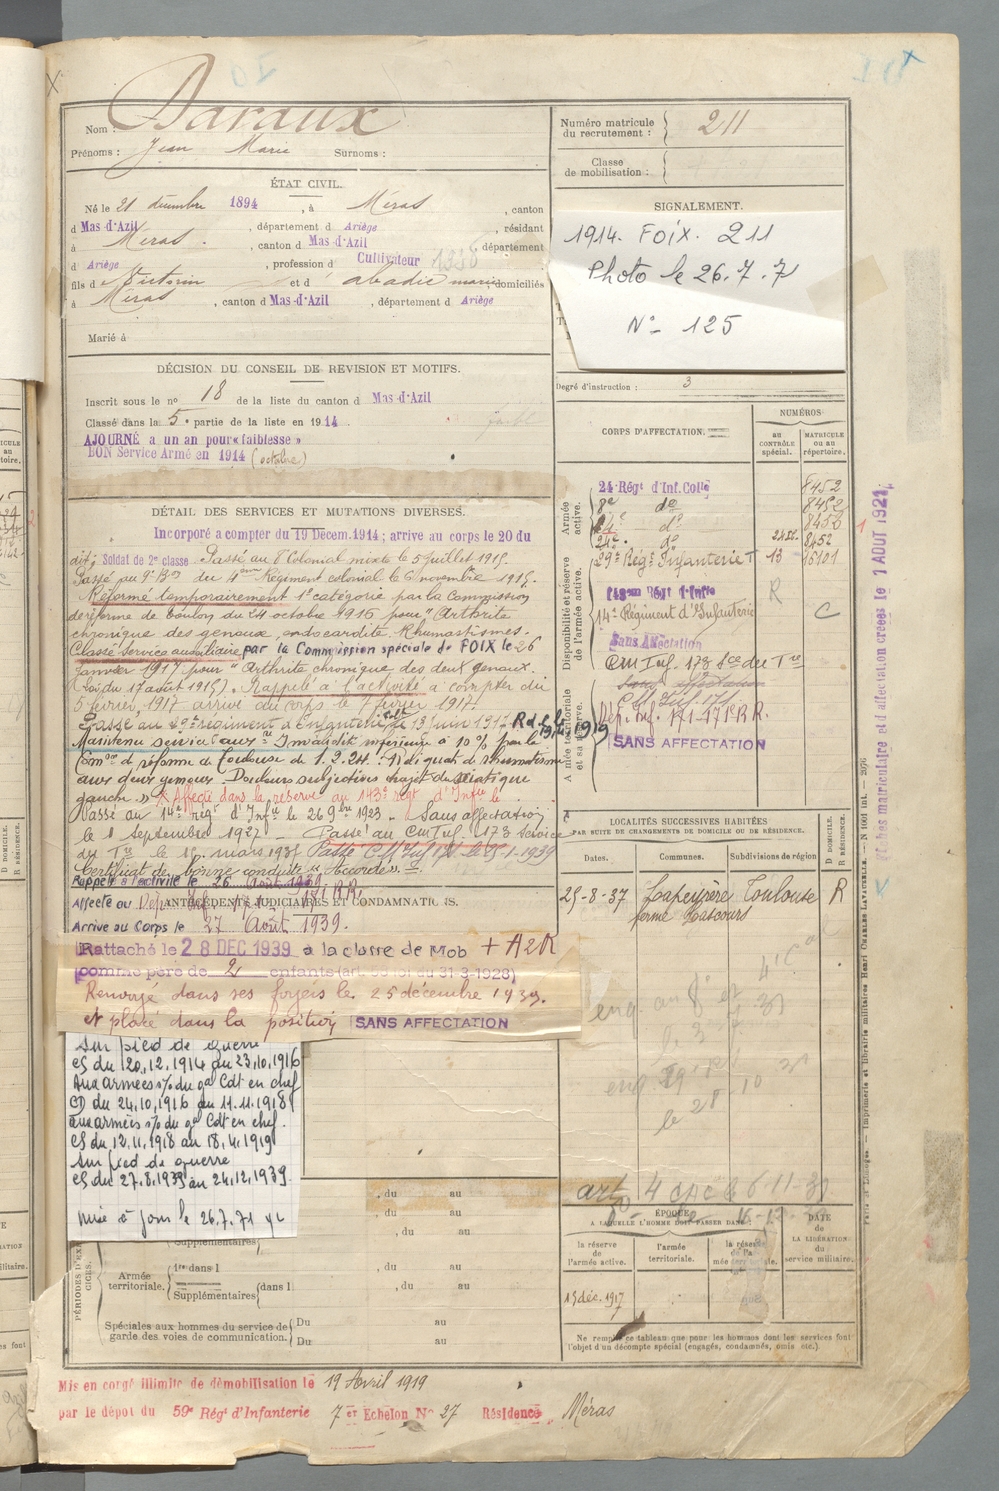 Nom : Daraux
Prénoms : Jean Marie Surnoms :
Numéro matricule du recrutement : 211
Classe de mobilisation :
ÉTAT CIVIL.
Né le 21 décembre 1894, à Méras, canton
d Mas-d'Azil, département d Ariège, résidant
à Méras, canton d Mas-d'Azil, département
d Ariège, profession d Cultivateur
fils d Victorin et d abadie marie domiciliés
à Méras, canton d Mas-d'Azil, département d Ariège
Marié à
SIGNALEMENT.
1914. FOIX. 211
Photo le 26.7.71
N° 125
Degré d'instruction : 3
DÉCISION DU CONSEIL DE REVISION ET MOTIFS.
Inscrit sous le n° 18 de la liste du canton d Mas-d'Azil
Classé dans la 5e partie de la liste en 1914.
AJOURNÉ a un an pour « faiblesse »
BON Service Armé en 1914 (octobre)
DÉTAIL DES SERVICES ET MUTATIONS DIVERSES.
Incorporé a compter du 19 Décem. 1914 ; arrive au corps le 20 du
dit ; Soldat de 2e classe Passé au 8e Colonial mixte le 5 juillet 1915.
Passé au 9e Bon du 4eme Régiment colonial le novembre 1915.
Réformé temporairement 1e catégorie par la Commission
de réforme de Toulon du 24 octobre 1916 pour "Arthrite
chronique des genoux, endocardite Rhumatismes.
Classé Service auxiliaire par la Commission spéciale de FOIX le 26
Janvier 1917 pour "Arthrite chronique des deux genoux.
(Loi du 17 août 1915). Rappelé à l'activité à compter du
5 février 1917 arrivé au corps le 7 février 1917.
Passé au régiment d'Infanterie le 13 Juin 1917
Maintenu service aux. Invalidité inférieure à 10 % par la
Com on de réforme de Toulouse du 1.2.24. "Reliquat de rhumatisme
aux deux genoux. Douleurs subjectives trajet du sciatique
gauche." Affecté dans la réserve au 143e régt d'Infie le
Passé au 14e régt d'Infie le 26 9bre 1923 - Sans affectation
le 1 Septembre 1927 - Passé au CM Inf. 173 Service
du Tre le 15 mars 1935 Passé CM Inf le 15-1-1939
Certificat de bonne conduite "Accordé".
Rappelé à l'activité le 26 Août 1939
Affecté au Dépôt Inf 171 R.R.
ANTÉCÉDENTS JUDICIAIRES ET CONDAMNATIONS.
Arrivé au Corps le 27 Août 1939.
Rattaché le 28 DEC 1939 à la classe de Mob + A2R
comme père de 2 enfants (art. 58 loi du 31-3-1928)
Renvoyé dans ses foyers le 25 décembre 1939.
et placé dans la position SANS AFFECTATION
Sur pied de guerre
CS du 20.12.1914 au 23.10.1916
Aux armées s/s du gal Cdt en chef
CD du 24.10.1916 au 11.11.1918
aux armées s/s du gal Cdt en chef.
CS du 12.11.1918 au 18.4.1919
Sur pied de guerre
CS du 27.8.1939 au 24.12.1939
Mise à jour le 26.7.71
CORPS D'AFFECTATION.
NUMÉROS
AU CONTRÔLE spécial.
MATRICULE ou au répertoire.
Armée active.
24 Régt d'Inf. Colle 8452
8e do 8452
4e do 8456
24e do 8452
Disponibilité et réserve de l'armée active.
59e Régt Infanterie 13 15101
143eme Régt d'Infie R
14e Régiment d'Infanterie C
Sans Affectation
CM Inf. 173 Sce du Tre
Armée territoriale et sa réserve.
Sans affectation
CM Inf. 171
Dép. Inf. 171 - 171e R.R.
SANS AFFECTATION
LOCALITÉS SUCCESSIVES HABITÉES
PAR SUITE DE CHANGEMENTS DE DOMICILE OU DE RÉSIDENCE.
Dates. Communes. Subdivisions de région
D DOMICILE.
R RÉSIDENCE.
25-8-37 Lapeyrère Toulouse R
ferme Lascours
art 4 CAC le 6-11-39
, du au
, du au
Supplémentaires , du au
PÉRIODES D'EXERCICES.
Armée territoriale.
1re dans l , du au
Supplémentaires dans l , du au
Spéciales aux hommes du service de garde des voies de communication.
Du au
Du au
ÉPOQUE
A LAQUELLE L'HOMME DOIT PASSER DANS :
DATE DE LA LIBÉRATION du service militaire.
la réserve de l'armée active.
l'armée territoriale.
la réserve de l'armée territoriale.
19 déc. 1917
Ne remplir ce tableau que pour les hommes dont les services font
l'objet d'un décompte spécial (engagés, condamnés, omis etc.).
Mis en congé illimité de démobilisation le 19 Avril 1919
par le dépôt du 59e Régt d'Infanterie 7 er Echelon N° 27 Résidence Méras
Fiches matriculaire et d'affectation créées le 1 AOUT 1921
Paris et Limoges. — Imprimerie et librairie militaires Henri CHARLES-LAVAUZELLE.